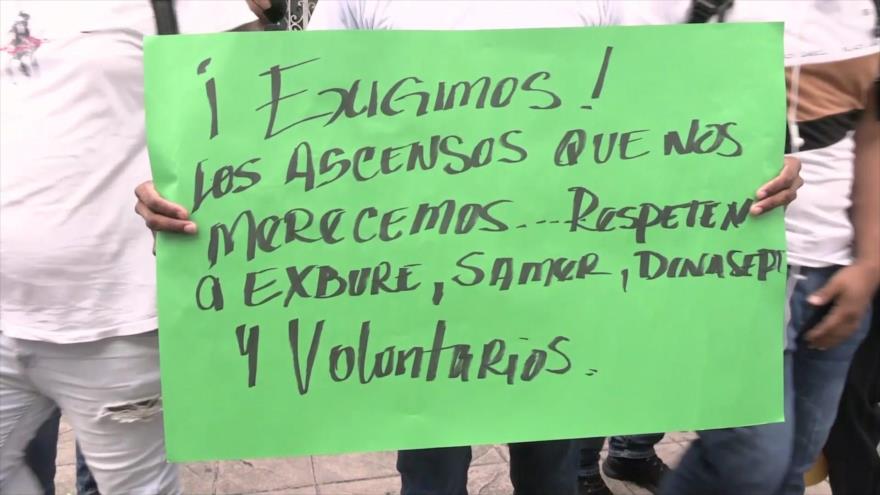 ¡EXIGIMOS!
LOS ASCENSOS QUE NOS
MERECEMOS... RESPETEN
A EXBURE, SAMER, DINASEPI
Y Voluntarios.